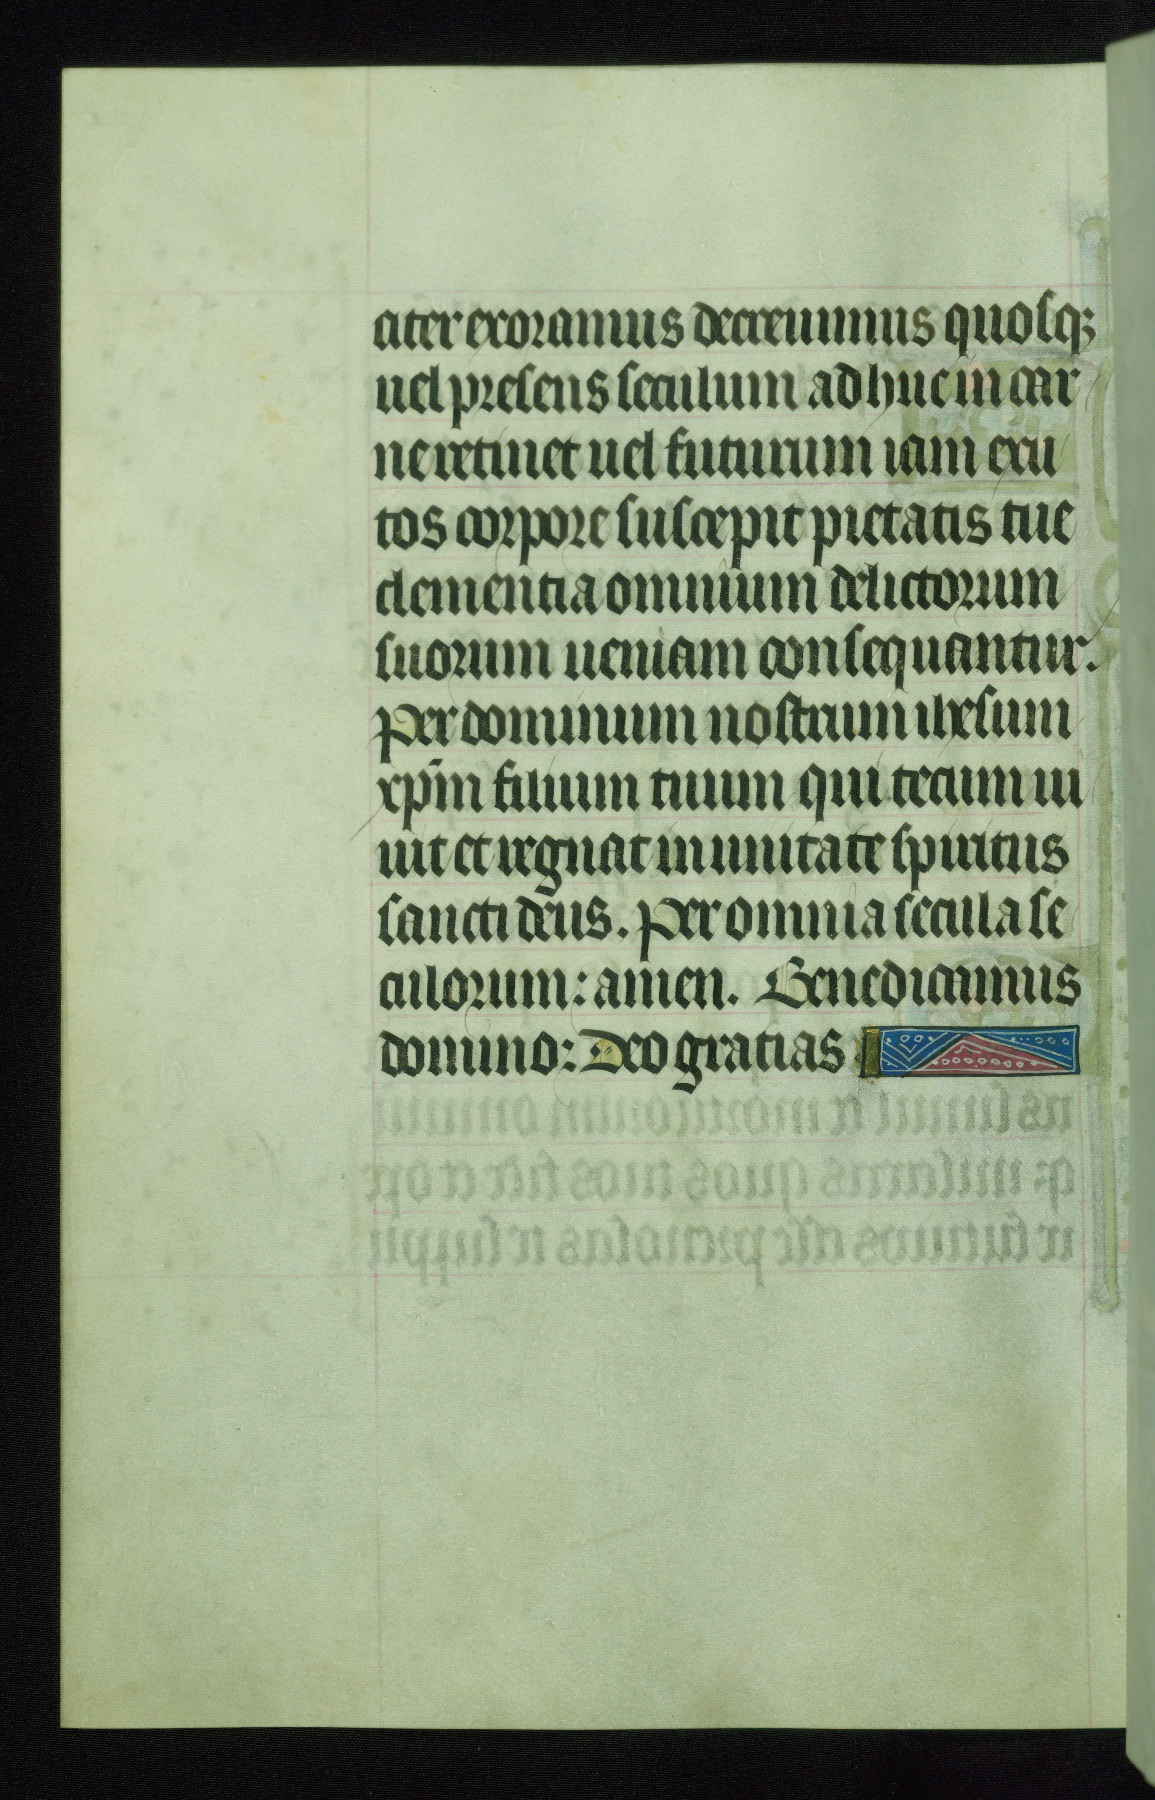 citer exoramus decreuimus quosq;
uel presens seculum adhuc in car
ne retinet uel futurum iam exu
tos corpore suscepit pietatis tue
clementia omnium delictorum
suorum ueniam consequantur.
Per dominum nostrum ihesum
xp̄m filium tuum qui tecum ui
uit et regnat in unitate spiritus
sancti deus. Per omnia secula se
culorum: amen. Benedicamus
domino: Deo gratias